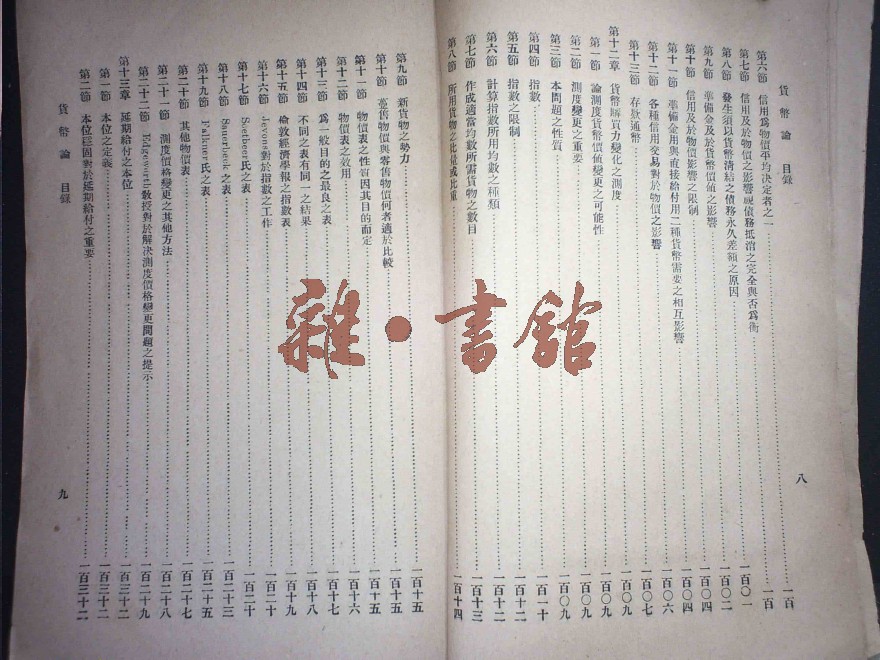 貨幣論 目錄
第六節 信用爲物價平均決定者之一 一百
第七節 信用及於物價之影響視債務抵消之完全與否爲衡 一百〇一
第八節 發生須以貨幣清結之債務永久差額之原因 一百〇二
第九節 準備金及於貨幣價値之影響 一百〇四
第十節 信用及於物價影響之限制 一百〇四
第十一節 準備金用與直接給付用二種貨幣需要之相互影響 一百〇六
第十二節 各種信用交易對於物價之影響 一百〇七
第十三節 存款通幣 一百〇九
第十二章 貨幣購買力變化之測度 一百〇九
第一節 論測度貨幣價値變更之可能性 一百〇九
第二節 測度變更之重要 一百〇九
第三節 本問題之性質 一百〇九
第四節 指數 一百一十
第五節 指數之限制 一百十二
第六節 計算指數所用均數之種類 一百十二
第七節 作成適當均數所需貨物之數目 一百十三
第八節 所用貨物之比量或比重 一百十四
八
第九節 新貨物之勢力 一百十五
第十節 躉售物價與零售物價何者適於比較 一百十五
第十一節 物價表之性質因其目的而定 一百十五
第十二節 物價表之效用 一百十六
第十三節 爲一般目的之最良之表 一百十七
第十四節 不同之表有同一之結果 一百十八
第十五節 倫敦經濟學報之指數表 一百十九
第十六節 Jevons對於指數之工作 一百二十
第十七節 Soetbeer氏之表 一百二十
第十八節 Sauerbeck之表 一百二十三
第十九節 Falkner氏之表 一百二十五
第二十節 其他物價表 一百二十七
第二十一節 測度價格變更之其他方法 一百二十八
第二十二節 Edgeworth教授對於解決測度價格變更問題之提示 一百二十九
第十三章 延期給付之本位 一百三十二
第一節 本位之定義 一百三十二
第二節 本位穩固對於延期給付之重要 一百三十二
貨幣論 目錄
九
雜·書館